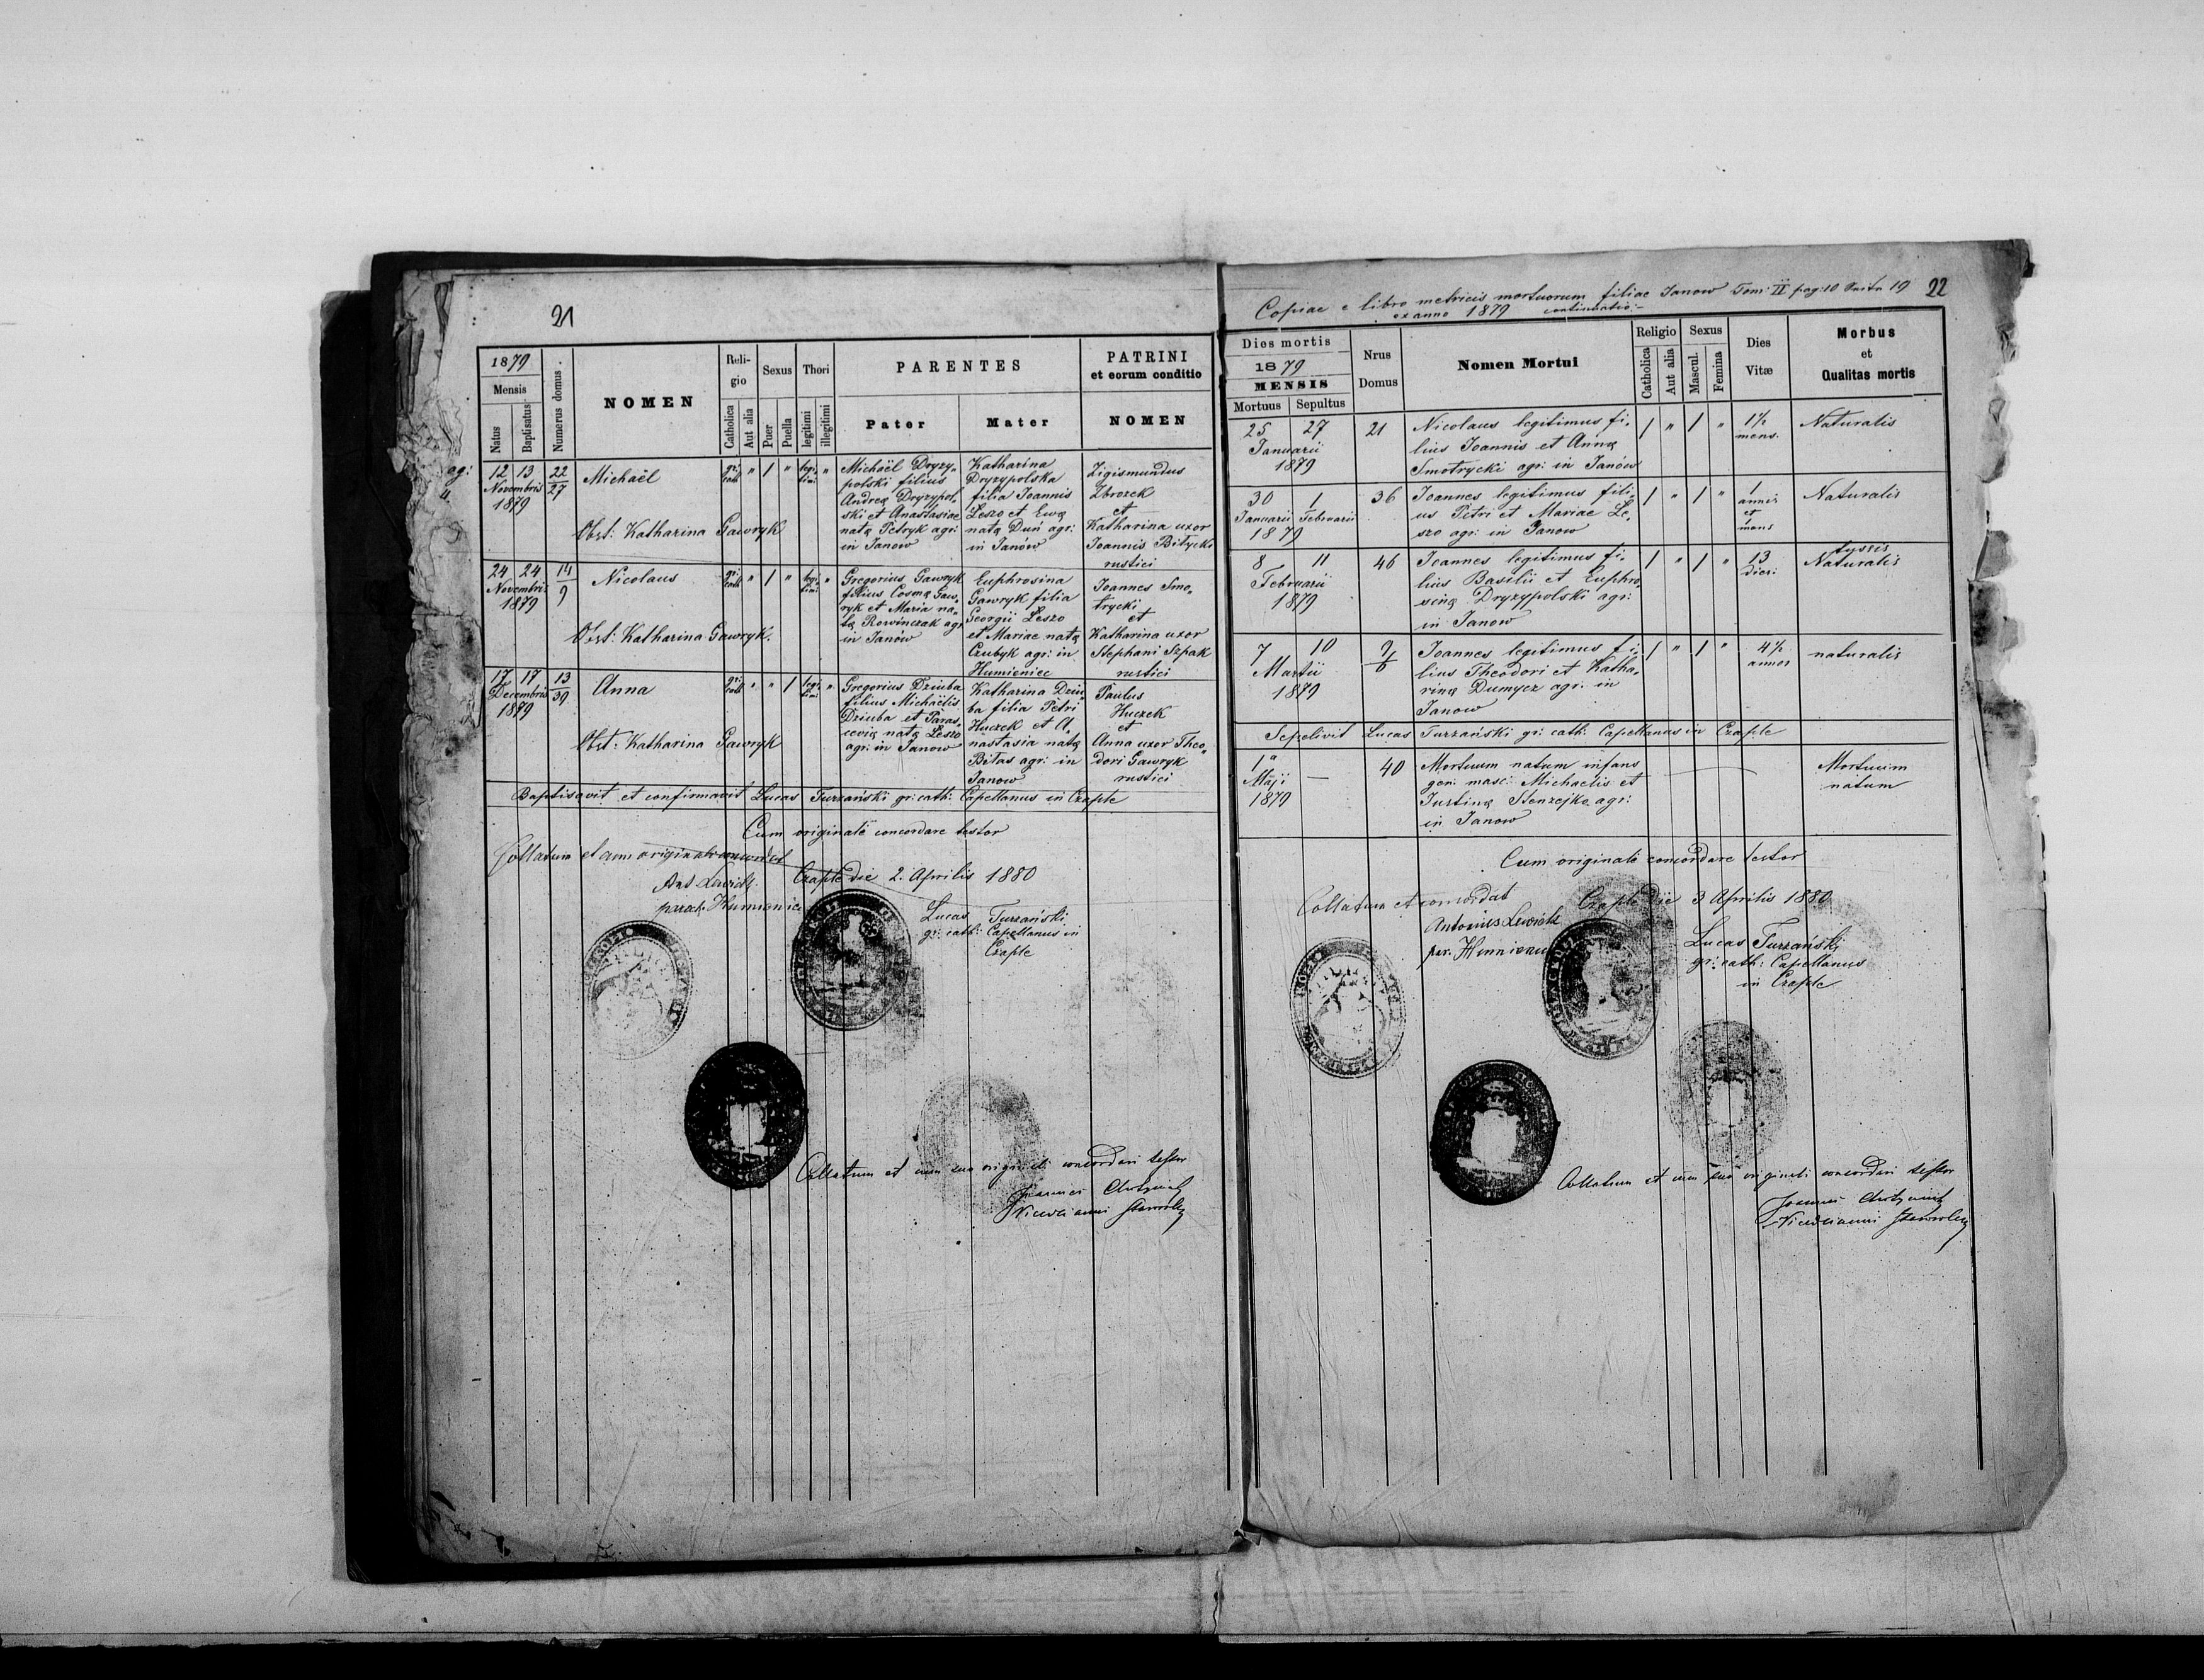 21
1879
Mensis
Natus
Baptisatus
Numerus domus.
NOMEN
Reli-
gio
Catholica
Aut alia
Sexus
Puer
Puella
Thori
legitimi
illegitimi
PARENTES
Pater
Mater
PATRINI
et eorum conditio
NOMEN
12 13
Novembris
1879
22
27
Michaël
Obst: Katharina Gawryk
gr:
cath
" / "
legi-
timi
"
Michaël Dryzy-
polski filius
Andreę Dryzypol-
ski et Anastasiae
natę Petryk agr:
in Janow
Katharina
Dryzypolska
filia Joannis
Leszo et Ewę
natę Duń agr:
in Janów
Zigismundus
Zbrozek
et
Katharina uxor
Joannis Bitycki
rustici
24 24
Novembris
1879
14
9
Nicolaus
Obst: Katharina Gawryk.
gr:
cath
" / "
legi-
timi
Gregorius Gawryk
filius Cosmę Gaw-
ryk et Maria na-
tę Rowinczak agr
in Janów
Euphrosina
Gawryk filia
Georgii Leszo
et Mariae natę
Czubyk agr: in
Humieniec
Joannes Smo-
trycki
et
Katharina uxor
Stephani Szpak
rustici
17 17
Decembris
1879
13
39
Anna
Obst: Katharina Gawryk
gr:
cath
" " /
legi-
timi
"
Gregorius Dziuba
filius Michaëlis
Dziuba et Paras-
cevię natę Leszo
agr: in Janow
Katharina Dziu-
ba filia Petri
Huczek et A-
nastasia natę
Bitas agr: in
Janow
Paulus
Huczek
et
Anna uxor Theo-
dori Gawryk
rustici
Baptisavit et confirmavit Lucas Turzański gr: cath: Capellanus in Czaple
Cum originale concordare testor
Collatum et cum originali concordat
Czaple die 2. Aprilis 1880
Ant Lewicki
paroch Humieniec
Lucas Turzański
gr: cath: Capellanus in
Czaple
Collatum et cum suo originali concordari testor
Joannes
Copiae e libro metricis mortuorum filiae Janow Tom: II pag: 10 19
ex anno 1879 continuatio:-
22
Dies mortis
1879
MENSIS
Mortuus
Sepultus
Nrus
Domus
Nomen Mortui
Religio
Catholica
Aut alia
Sexus
Mascul.
Femina
Dies
Vitæ
Morbus
et
Qualitas mortis
25 27
Januarii
1879
21
Nicolaus legitimus fi-
lius Joannis et Annę
Smotrycki agr: in Janów
/ " / "
1½
mens.
Naturalis
30 1
Januarii Februarii
1879
36
Joannes legitimus fili-
us Petri et Mariae Le-
szo agr: in Janow
/ " / "
1
annis
et
1
mens
Naturalis
8 11
Februarii
1879
46
Joannes legitimus fi-
lius Basilii et Euphro-
sinę Dryzypolski agr:
in Janow
/ " / "
13
dier:
tyssis
Naturalis
7 10
Martii
1879
9
6
Joannes legitimus fi-
lius Theodori et Katha-
rinę Dumycz agr: in
Janow
/ " / "
4½
annos
naturalis
Sepelivit Lucas Turzański gr: cath: Capellanus in Czaple
1a
Maji
1879
—
40
Mortuum natum infans
gen: masc: Michaelis et
Justinę Stenzejko agr:
in Janow
Mortuum
natum
Cum originale concordare testor
Collatum et concordat
Czaple die 3 Aprilis 1880
Antonius Lewicki
par. Humieniec
Lucas Turzański
gr: cath: Capellanus
in Czaple
Collatum et cum suo originali concordari testor
Joannes